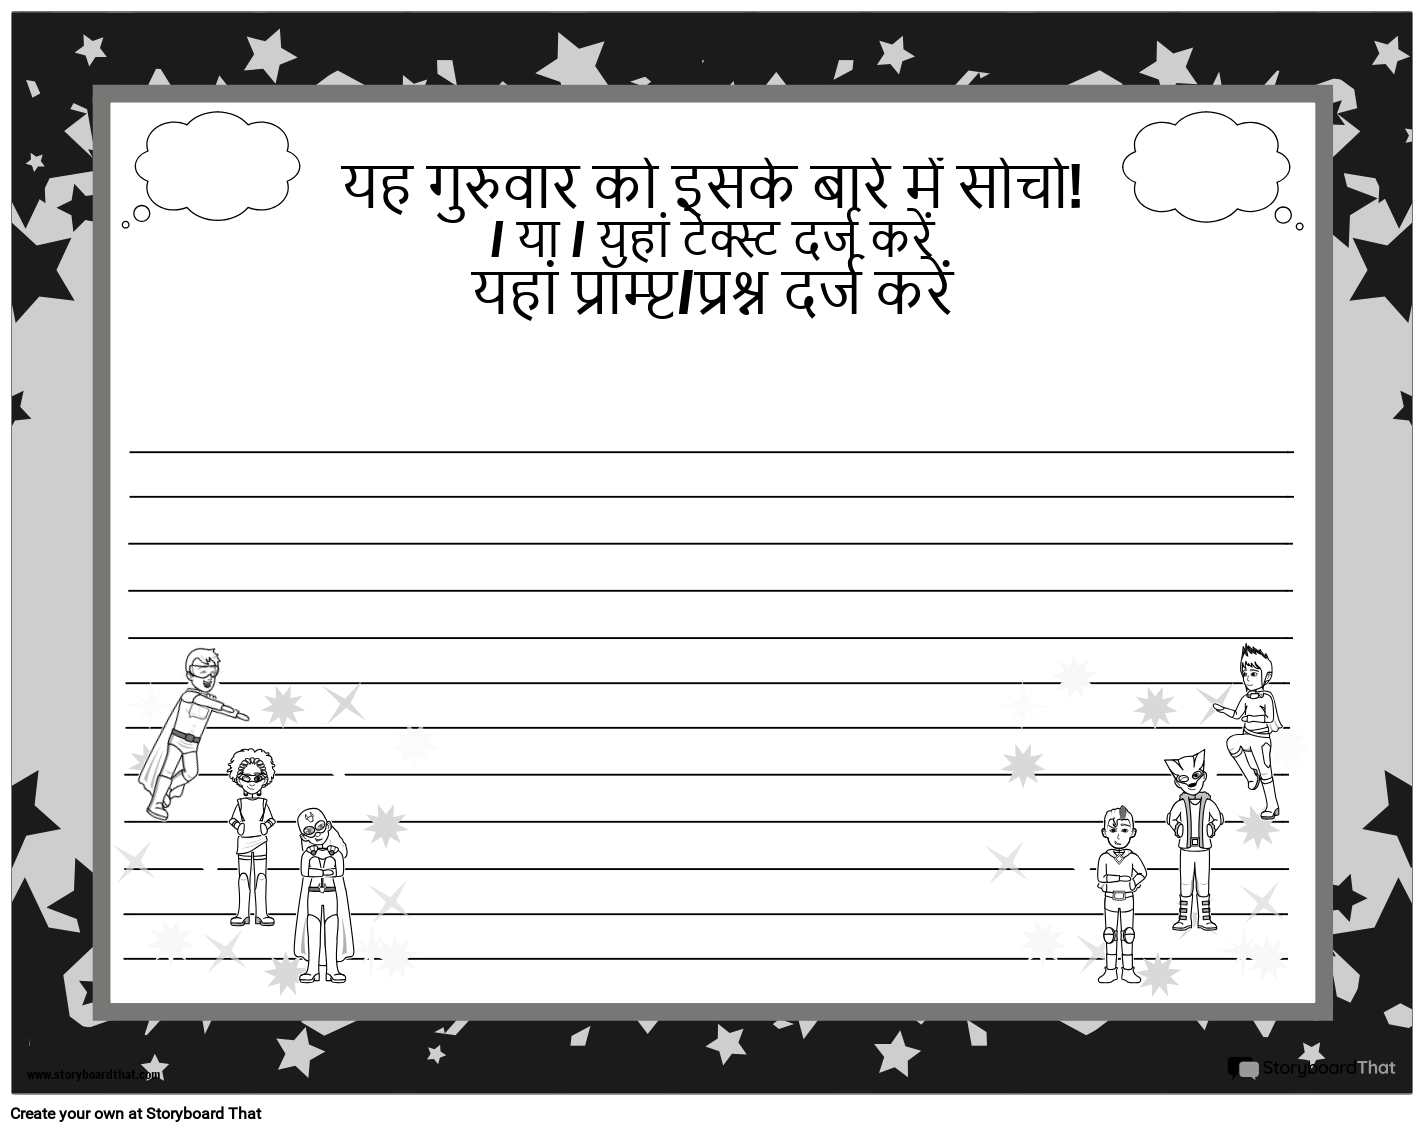 यह गुरुवार को इसके बारे में सोचो!
/ या / युहां टेक्स्ट दर्ज करें
यहां प्रॉम्प्ट/प्रश्न दर्ज करें
www.storyboardthat.com
StoryboardThat
Create your own at Storyboard That